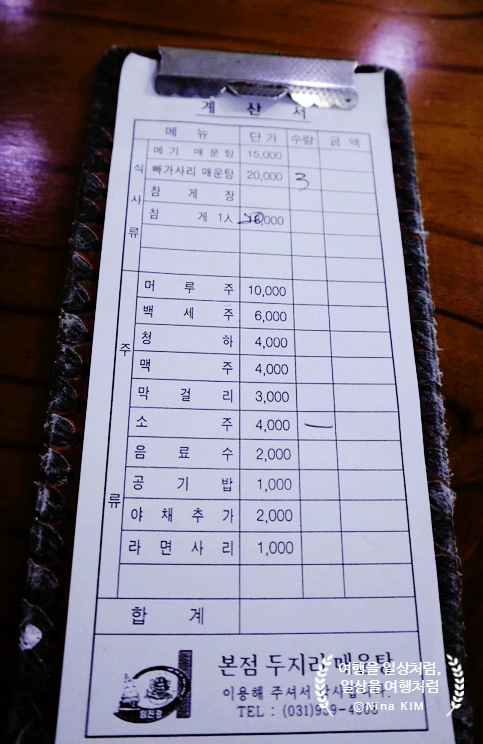 계 산 서
메 뉴 단 가 수량 금 액
식 사 류
메 기 매 운 탕 15,000
빠가사리 매운탕 20,000 3
참 게 장
참 게 1人
주 류
머 루 주 10,000
백 세 주 6,000
청 하 4,000
맥 주 4,000
막 걸 리 3,000
소 주 4,000 一
음 료 수 2,000
공 기 밥 1,000
야 채 추 가 2,000
라 면 사 리 1,000
합 계
본점 두지리 매운탕
이용해 주셔서
TEL : (031)
여행을 일상처럼,
일상을 여행처럼
©Nina KIM